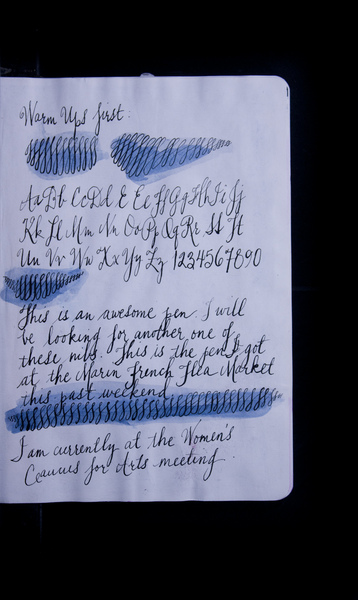 Warm Ups first:
Aa Bb Cc Dd E Ee Ff Gg Hh Ii Jj
Kk Ll Mm Nn Oo Pp Qq Rr Ss Tt
Uu Vv Ww Xx Yy Zz 1234567890
This is an awesome pen. I will
be looking for another one of
these nibs. This is the pen I got
at the Marin French Flea Market
this past weekend.
I am currently at the Women's
Caucus for Arts meeting.